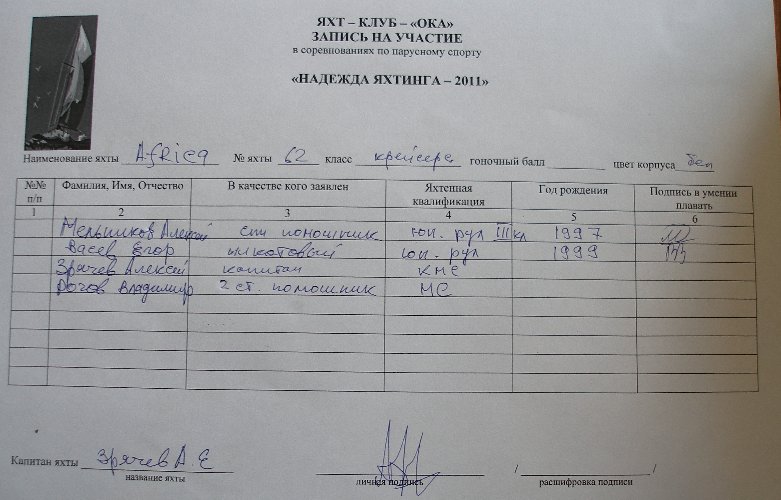 ЯХТ – КЛУБ – «ОКА»
ЗАПИСЬ НА УЧАСТИЕ
в соревнованиях по парусному спорту
«НАДЕЖДА ЯХТИНГА – 2011»
Наименование яхты Africa № яхты 62 класс крейсера гоночный балл цвет корпуса бел
№№ п/п Фамилия, Имя, Отчество В качестве кого заявлен Яхтенная квалификация Год рождения Подпись в умении плавать
1 2 3 4 5 6
Мельников Алексей ст помошник юн. рул III кл 1997
Васев Егор шкотовый юн. рул 1999
Зрячев Алексей капитан КМС
Рогов Владимир 2 ст. помошник МС
Капитан яхты Зрячев А. Е / /
название яхты личная подпись расшифровка подписи